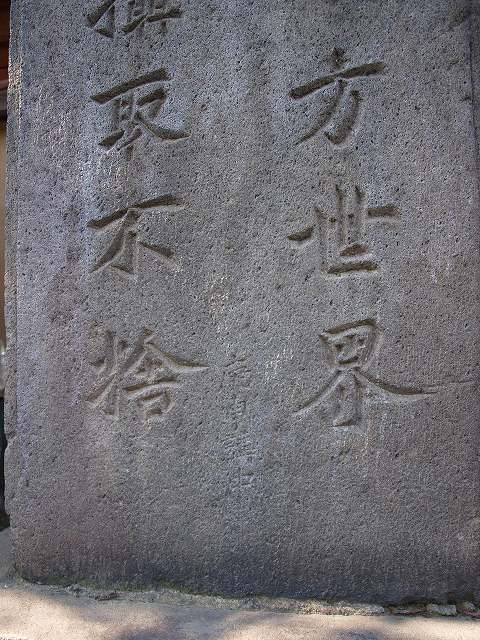 方世界
取不捨